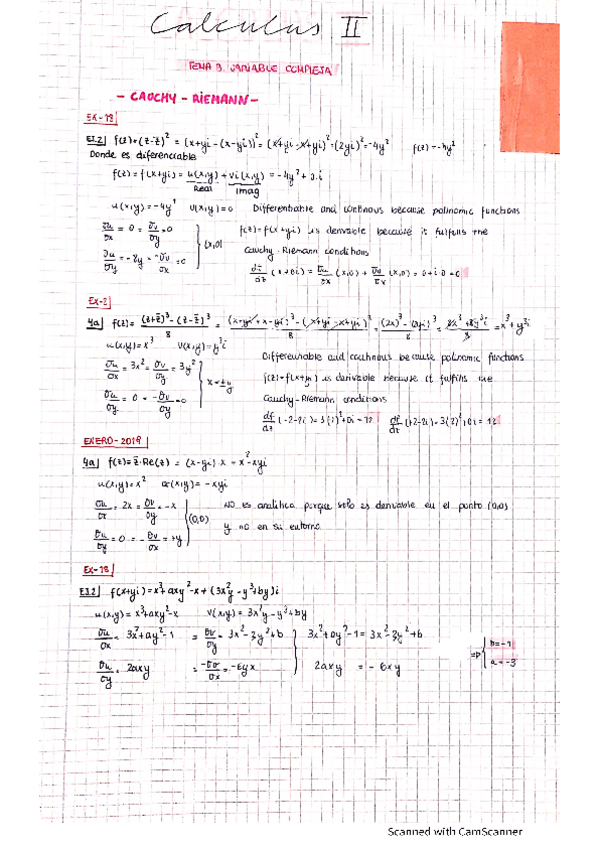 Calculus II
TEMA 3. VARIABLE COMPLEJA
- CAUCHY - RIEMANN -
EX-18
E3.2 f(z) = (z-z̄)² = (x+yi-(x-yi))² = (x+yi-x+yi)² = (2yi)² = -4y² f(z) = -4y²
Donde es diferenciable
f(z) = f(x+yi) = u(x,y) + vi(x,y) = -4y² + 0.i
Real Imag
u(x,y) = -4y² v(x,y) = 0 Differentiable and continous because polinomic functions
∂u/∂x = 0 = ∂v/∂y = 0 f(z) = f(x+yi) is derivable because it fulfills the
(x,0)
∂u/∂y = -8y = -∂v/∂x = 0 Cauchy-Riemann conditions
df/dz (x+0i) = ∂u/∂x (x,0) + ∂v/∂x (x,0) = 0+i·0 = 0
EX-2
4a f(z) = (z+z̄)³-(z-z̄)³/8 = (x+yi+x-yi)³-(x+yi-x+yi)³/8 = (2x)³-(2yi)³/8 = 8x³+8y³i/8 = x³+y³i
u(x,y) = x³ v(x,y) = y³i
∂u/∂x = 3x² = ∂v/∂y = 3y² Differentiable and continous because polinomic functions
x = ±y f(z) = f(x+yi) is derivable because it fulfills the
∂u/∂y = 0 = -∂v/∂x = 0 Cauchy-Riemann conditions
df/dz (-2-2i) = 3(2)²+0i = 12 df/dz (+2-2i) = 3(2)²+0i = 12
ENERO-2019
4a f(z) = z̄·Re(z) = (x-yi)·x = x²-xyi
u(x,y) = x² v(x,y) = -xyi
∂u/∂x = 2x = ∂v/∂y = -x NO es analitica porque solo es derivable en el punto (0,0)
(0,0) y no en su entorno
∂u/∂y = 0 = -∂v/∂x = +y
EX-18
E3.2 f(x+yi) = x³+axy²-x+(3x²y-y³+by)i
u(x,y) = x³+axy²-x v(x,y) = 3x²y-y³+by
∂u/∂x = 3x²+ay²-1 = ∂v/∂y = 3x²-3y²+b 3x²+ay²-1 = 3x²-3y²+b
=> b=-1
a=-3
∂u/∂y = 2axy = -∂v/∂x = -6yx 2axy = -6xy
Scanned with CamScanner